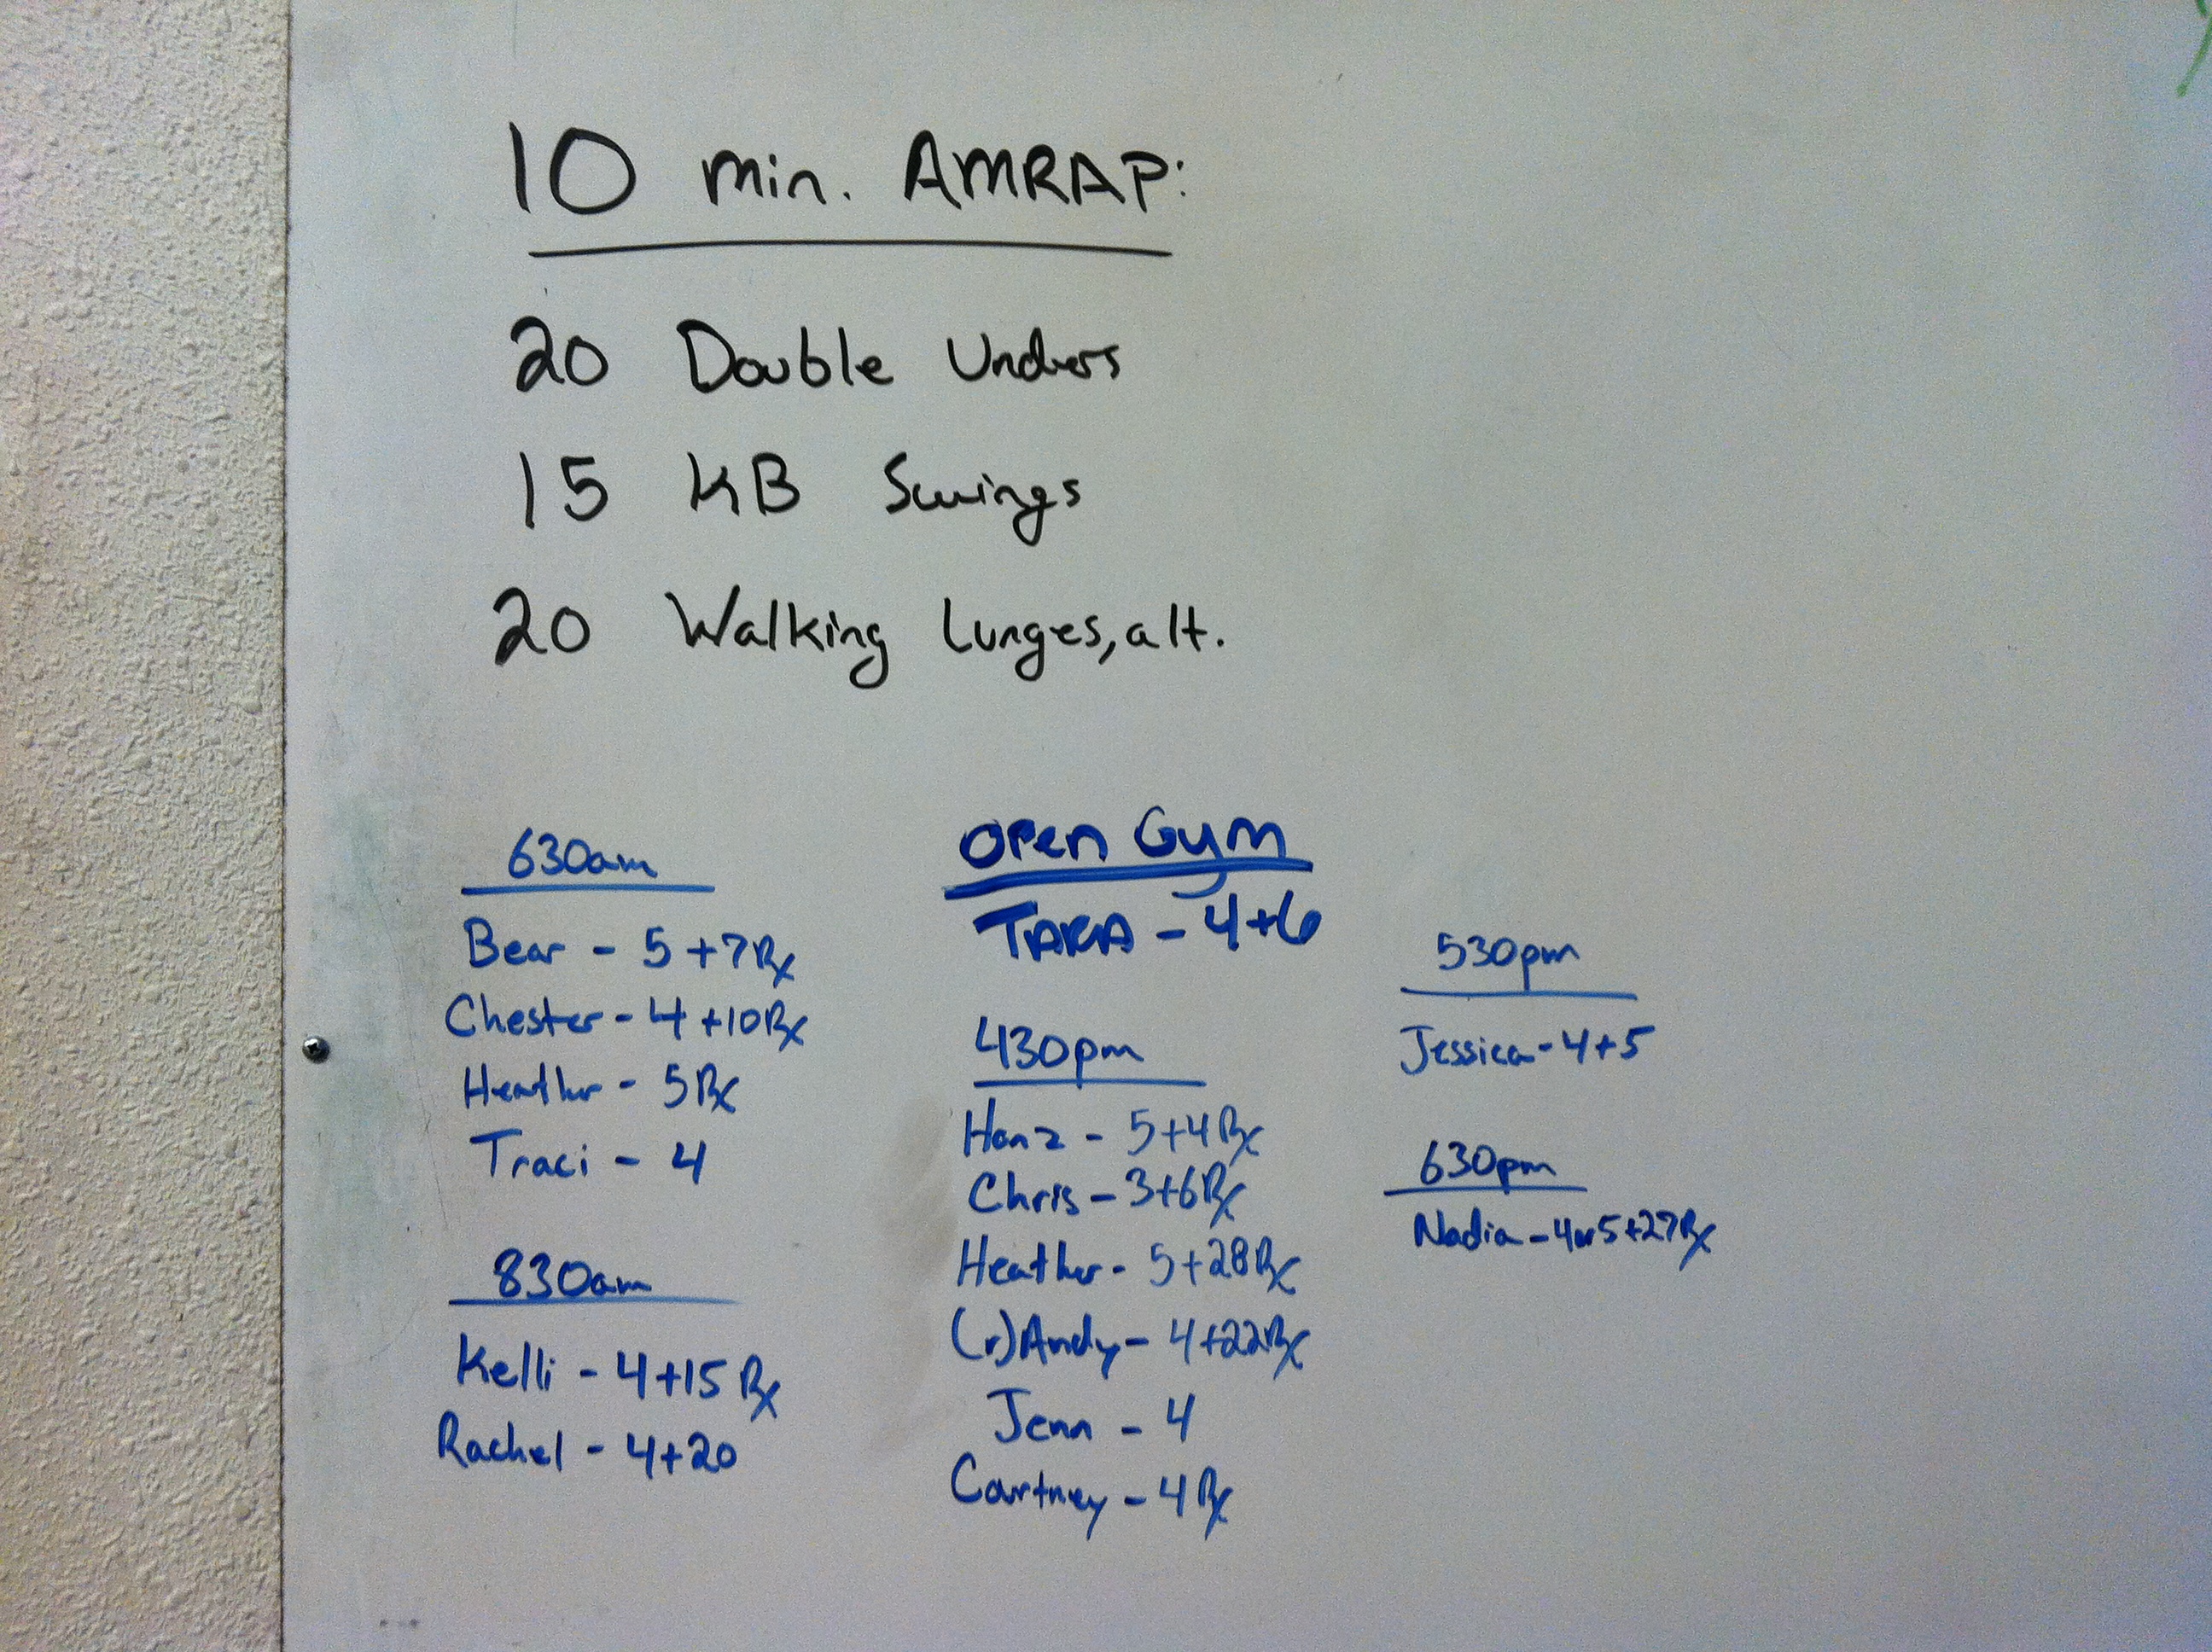 10 min. AMRAP:
20 Double Unders
15 KB Swings
20 Walking Lunges, alt.
630am
Bear - 5+7Rx
Chester - 4+10Rx
Heather - 5Rx
Traci - 4
830am
Kelli - 4+15 Rx
Rachel - 4+20
Open Gym
TARA - 4+6
430pm
Hanz - 5+4Rx
Chris - 3+6Rx
Heather - 5+28Rx
(r)Andy - 4+22Rx
Jenn - 4
Courtney - 4Rx
530pm
Jessica - 4+5
630pm
Nadia - 4or5+27Rx